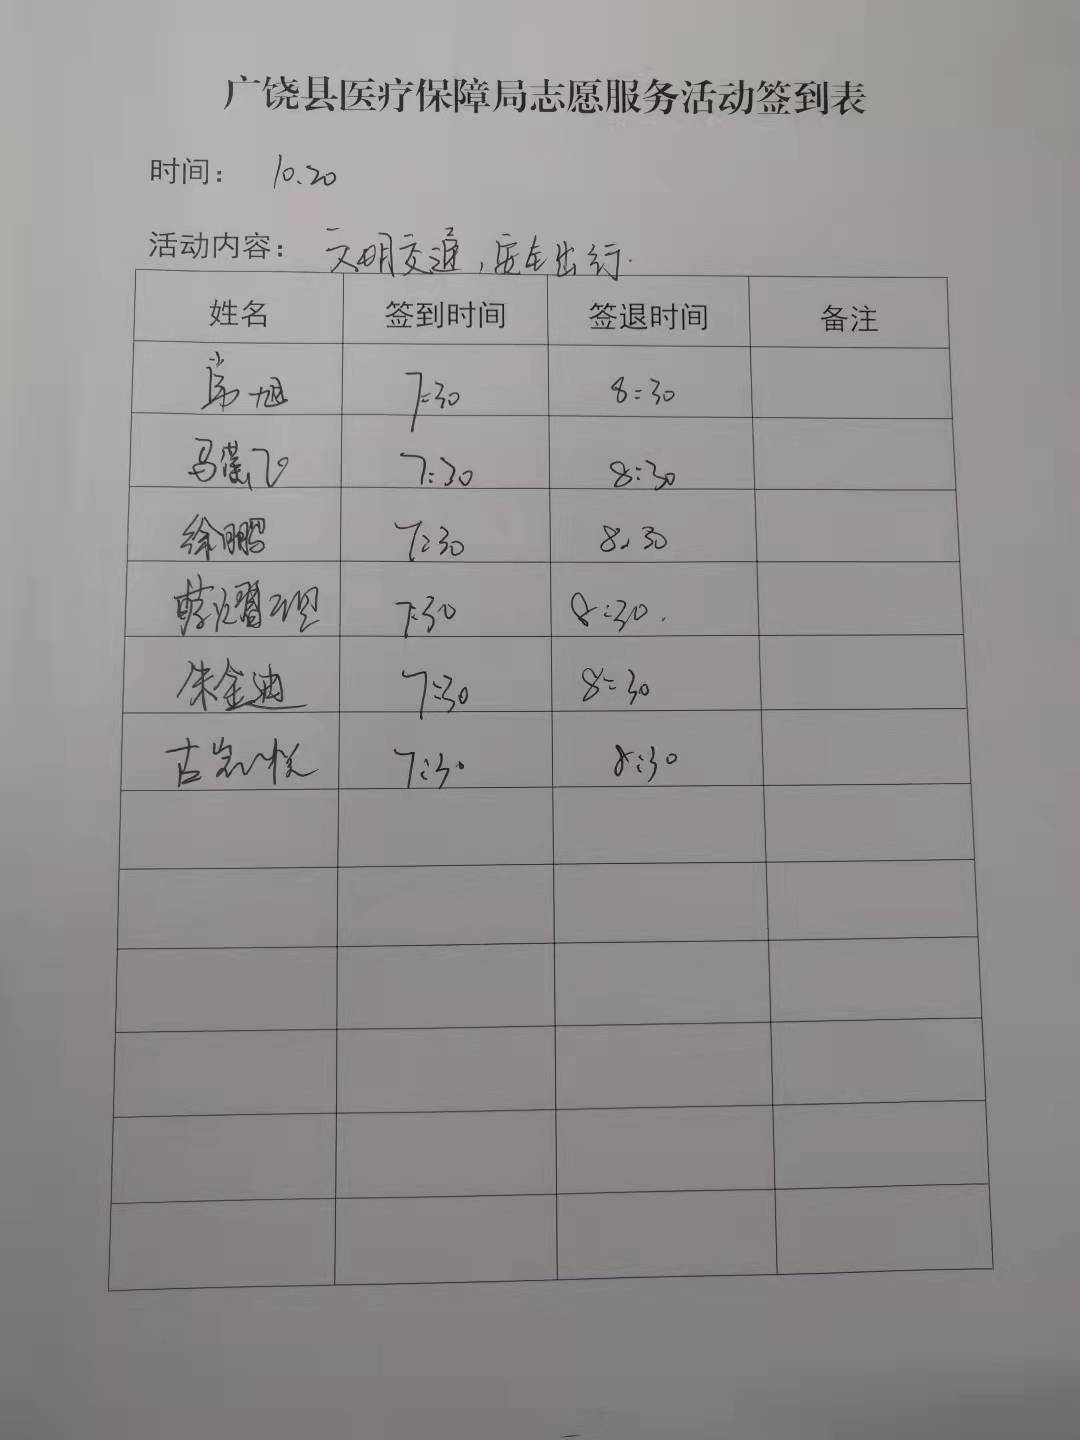 广饶县医疗保障局志愿服务活动签到表
时间： 10.20
活动内容： 文明交通，安全出行.
姓名 签到时间 签退时间 备注
常旭 7:30 8:30
马 飞 7:30 8:30
徐鹏 7:30 8:30
7:30 8:30.
朱金迪 7:30 8:30
古 悦 7:30 8:30